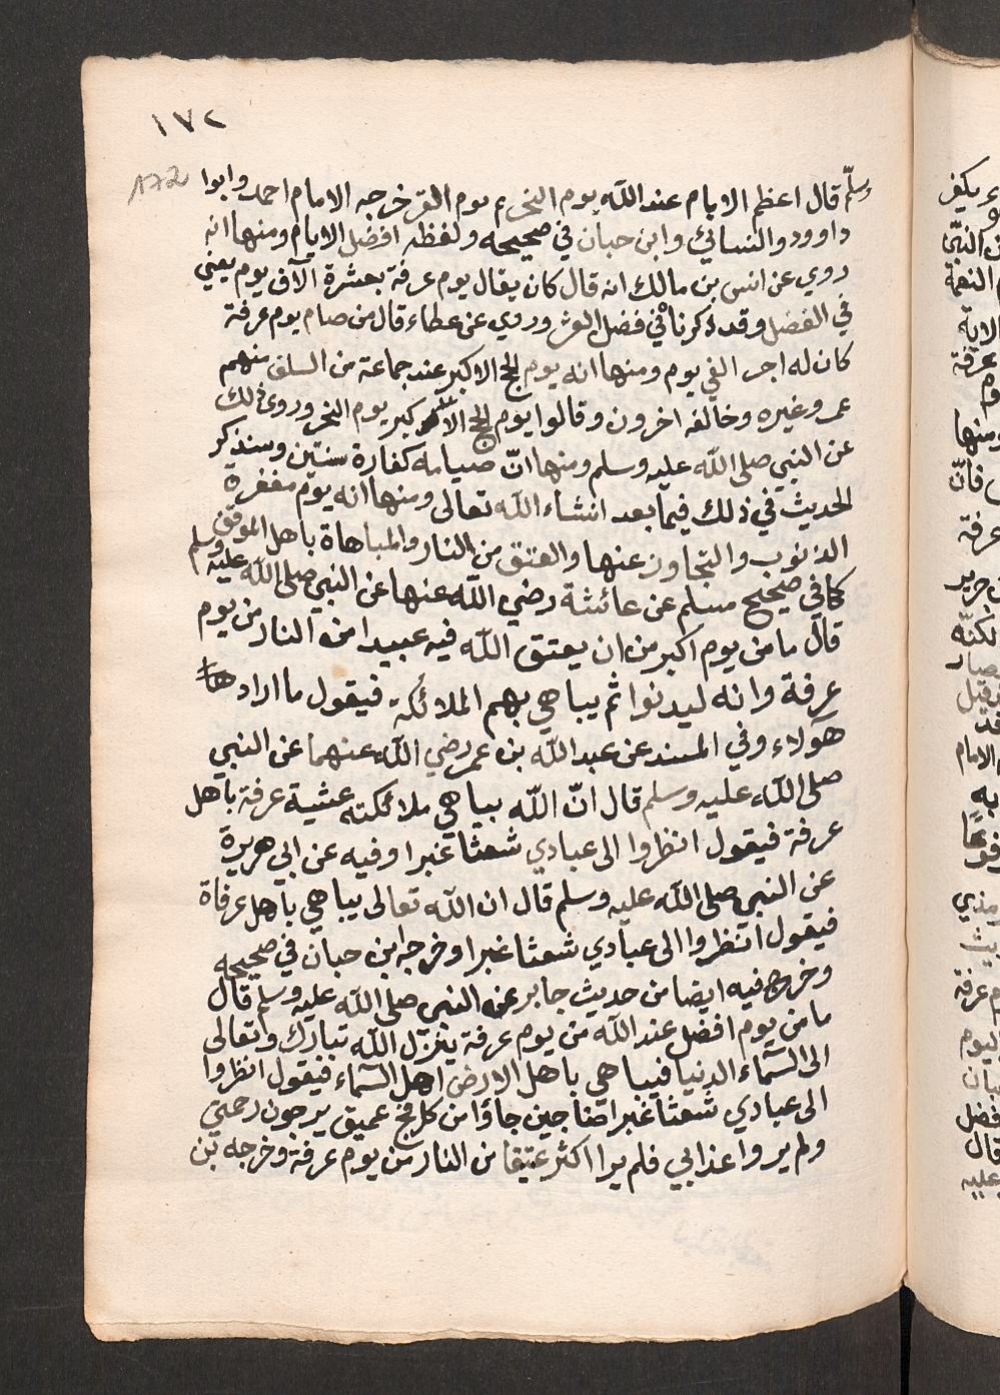 ١٧٢
172
وسلّم قال اعظم الايام عند الله يوم النحر ثم يوم القر خرجه الامام احمد وابوا
داوود والنسائي وابن حبان في صحيحه ولفظه افضل الايام ومنها انه
روي عن انس بن مالك انه قال كان يقال يوم عرفة بعشرة الآف يوم يعني
في الفضل وقد ذكرناه في فضل العشر وروي عن عطاء قال من صام يوم عرفة
كان له اجر الفي يوم ومنها انه يوم الحج الاكبر عند جماعة من السلف منهم
عمر وغيره وخالفه اخرون وقالوا يوم الحج الاكبر يوم النحر وروي ذلك
عن النبي صلى الله عليه وسلم ومنها انّ صيامه كفارة سنتين وسنذكر
الحديث في ذلك فيما بعد انشاء الله تعالى ومنها انه يوم مغفرة
الذنوب والتجاوز عنها والعتق من النار والمباهاة باهل الموقف
كما في صحيح مسلم عن عائشة رضي الله عنها عن النبي صلى الله عليه وسلم
قال ما من يوم اكبر من ان يعتق الله فيه عبيدا من النار من يوم
عرفة وانه ليدنوا ثم يباهي بهم الملائكة فيقول ما اراد
هآولاء وفي المسند عن عبد الله بن عمر رضي الله عنهما عن النبي
صلى الله عليه وسلم قال انّ الله يباهي ملائكته عشية عرفة باهل
عرفة فيقول انظروا الى عبادي شعثا غبرا وفيه عن ابي هريرة
عن النبي صلى الله عليه وسلم قال ان الله تعالى يباهي باهل عرفاة
فيقول انظروا الى عبادي شعثا غبرا وخرجه ابن حبان في صحيحه
وخرج فيه ايضا من حديث جابر عن النبي صلى الله عليه وسلم قال
ما من يوم افضل عند الله من يوم عرفة ينزل الله تبارك وتعالى
الى السّماء الدنيا فيباهي باهل الارض اهل السّماء فيقول انظروا
الى عبادي شعثا غبرا ضاجين جاؤا من كل فج عميق يرجون رحمتي
ولم يروا عذابي فلم يرا اكثر عتيقا من النار من يوم عرفة وخرجه بن